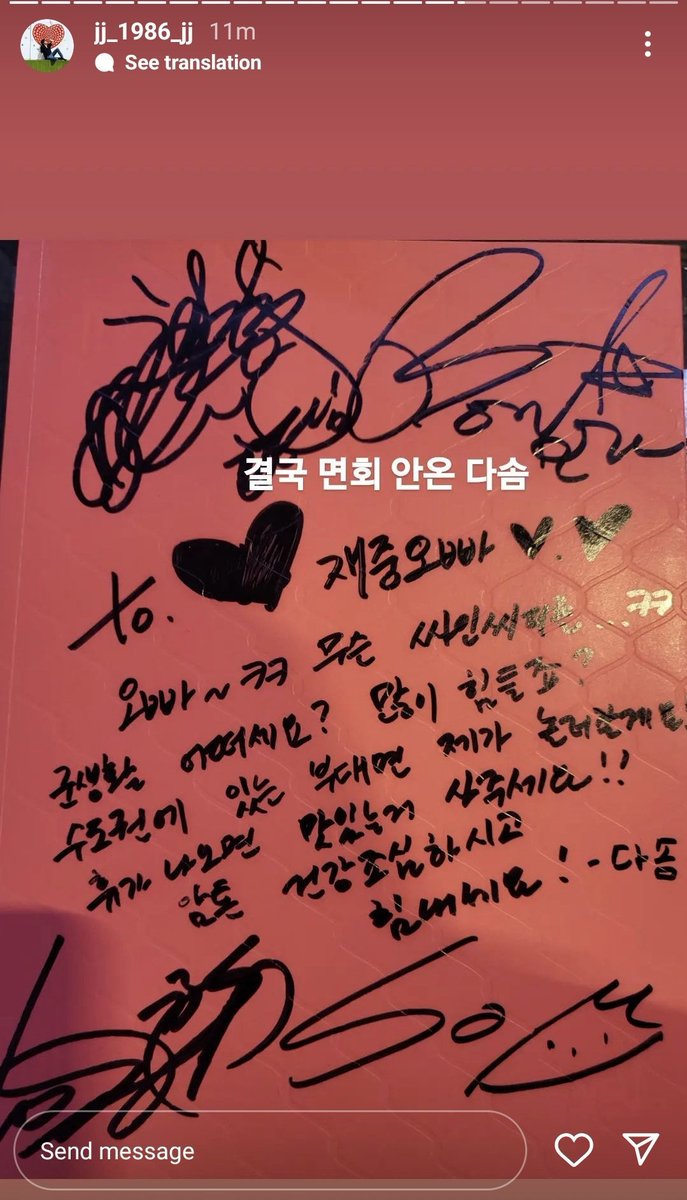 jj_1986_jj 11m
See translation
Bora
결국 면회 안온 다솜
to. 재중오빠
오빠~ ㅋㅋ 무슨 싸인씨디를 ㅋㅋ
군생활 어떠세요? 많이 힘들죠?
수도권에 있는 부대면 제가 놀러갈게요
휴가 나오면 맛있는거 사주세요!!
암튼 건강조심하시고
힘내세요! - 다솜
So
Send message